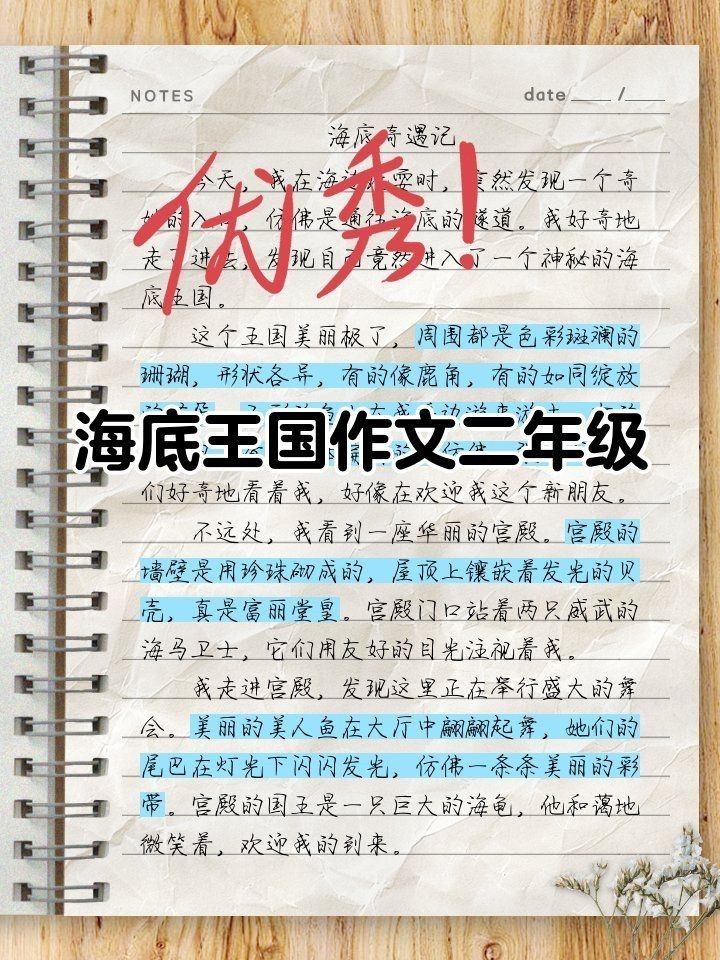 NOTES date ___ /___
海底奇遇记
优秀!
今天，我在海边玩耍时，突然发现一个奇
妙的入口，仿佛是通往海底的隧道。我好奇地
走了进去，发现自己竟然进入了一个神秘的海
底王国。
这个王国美丽极了，周围都是色彩斑斓的
珊瑚，形状各异，有的像鹿角，有的如同绽放
海底王国作文二年级
们好奇地看着我，好像在欢迎我这个新朋友。
不远处，我看到一座华丽的宫殿。宫殿的
墙壁是用珍珠砌成的，屋顶上镶嵌着发光的贝
壳，真是富丽堂皇。宫殿门口站着两只威武的
海马卫士，它们用友好的目光注视着我。
我走进宫殿，发现这里正在举行盛大的舞
会。美丽的美人鱼在大厅中翩翩起舞，她们的
尾巴在灯光下闪闪发光，仿佛一条条美丽的彩
带。宫殿的国王是一只巨大的海龟，他和蔼地
微笑着，欢迎我的到来。